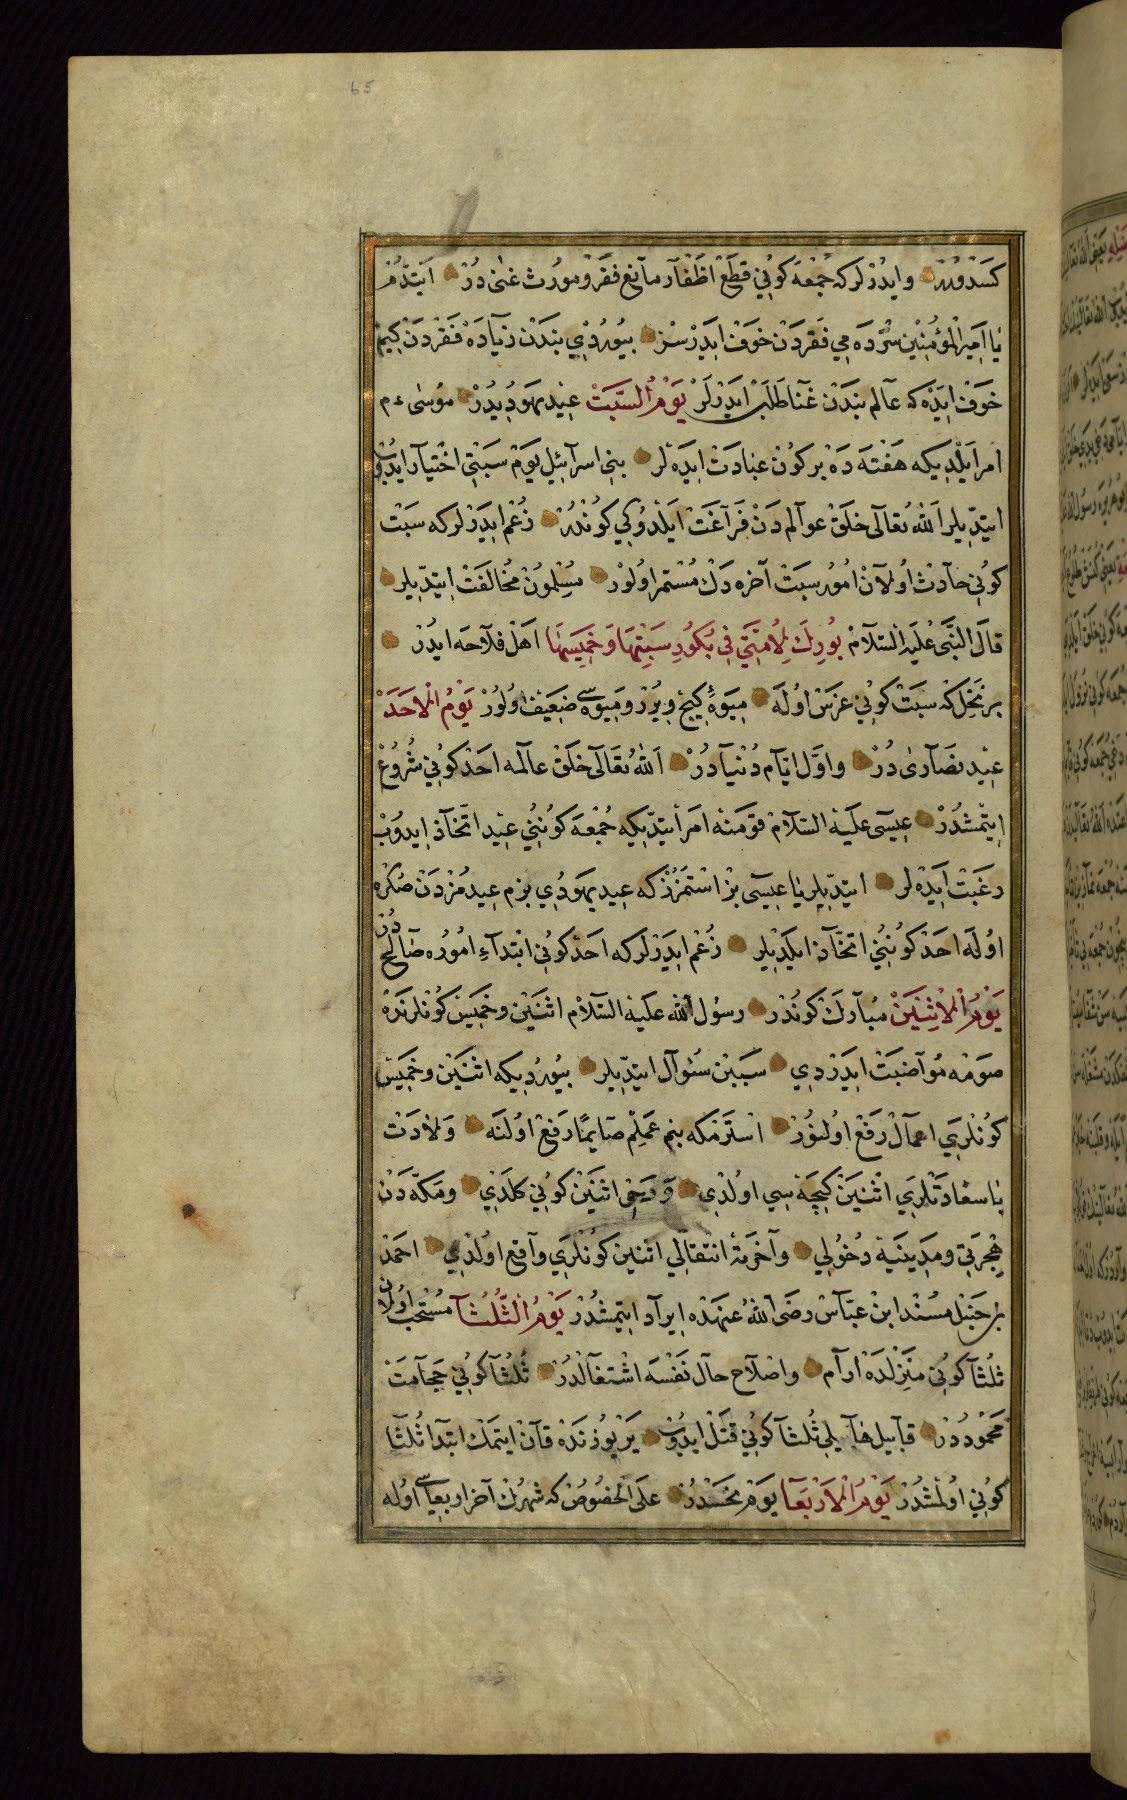 65
وايدرلر كه جمعه كونى قطع اظفار مانع فقر ومورث غنى در ايتدم
يا امير المؤمنين سز ده مى فقردن خوف ايدرسز بيوردى بندن زياده فقردن كيم
خوف ايده كه عالم بندن غنا طلب ايدرلر يوم السبت عيد يهوديدر موسى عم
امر ايلديكه هفته ده بر كون عبادت ايده لر بنى اسرائيل يوم سبتى اختيار ايدوب
ايتديلر الله تعالى خلق عوالم دن فراغت ايلدوكى كوندر زعم ايدرلر كه سبت
كونى حادث اولان امور سبت آخره دك مستمر اولور مسلمون مخالفت ايتديلر
قال النبى عليه السلام بورك لامتى فى بكور سبتها وخميسها اهل فلاحه ايدر
بر نخل كه سبت كونى غرس اوله ميوه كيج ويرر وميوه سى ضعيف اولور يوم الاحد
عيد نصارى در واول ايام دنيا در الله تعالى خلق عالمه احد كونى شروع
ايتمشدر عيسى عليه السلام قومنه امر ايتديكه جمعه كوننى عيد اتخاذ ايدوب
رغبت ايده لر ايتديلر يا عيسى بز استمزز كه عيد يهودى بزم عيدمزدن صكره
اوله احد كوننى اتخاذ ايلديلر زعم ايدرلر كه احد كونى ابتداء اموره صالح در
يوم الاثنين مبارك كوندر رسول الله عليه السلام اثنين وخميس كونلرنده
صومه مواضبت ايدردى سببن سئوال ايتديلر بيورديكه اثنين وخميس
كونلرى اعمال رفع اولنور استرمكه بنم عملم صايما رفع اولنه ولادت
با سعادتلرى اثنين كيجه سى اولدى ودخى اثنين كونى كلدى ومكه دن
هجرتى ومدينيه دخولى وآخرته انتقالى اثنين كونلرى واقع اولدى احمد
بن حنبل مسند ابن عباس رضى الله عنهده ايراد ايتمشدر يوم الثلثا مستحب اولان
ثلثا كونى منزلده ارام واصلاح حال نفسه اشتغالدر ثلثا كونى حجامت
محموددر قابيل هابيلى ثلثا كونى قتل ايدوب ير يوزنده قان ايتمك ابتدا ثلثا
كونى اولمشدر يوم الاربعا يوم نحسدر على الخصوص كه شهرك آخر اربعاسى اوله